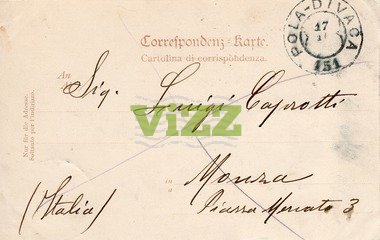 Correspondenz-Karte.
Cartolina di corrispondenza.
POLA-DIVACA
17
151
An
a
Sig. Luigi Caprotti
VIZZ
Nur für die Adresse.
Soltanto per l'indirizzo.
in
a
Monza
(Italia)
Piazza Mercato 3